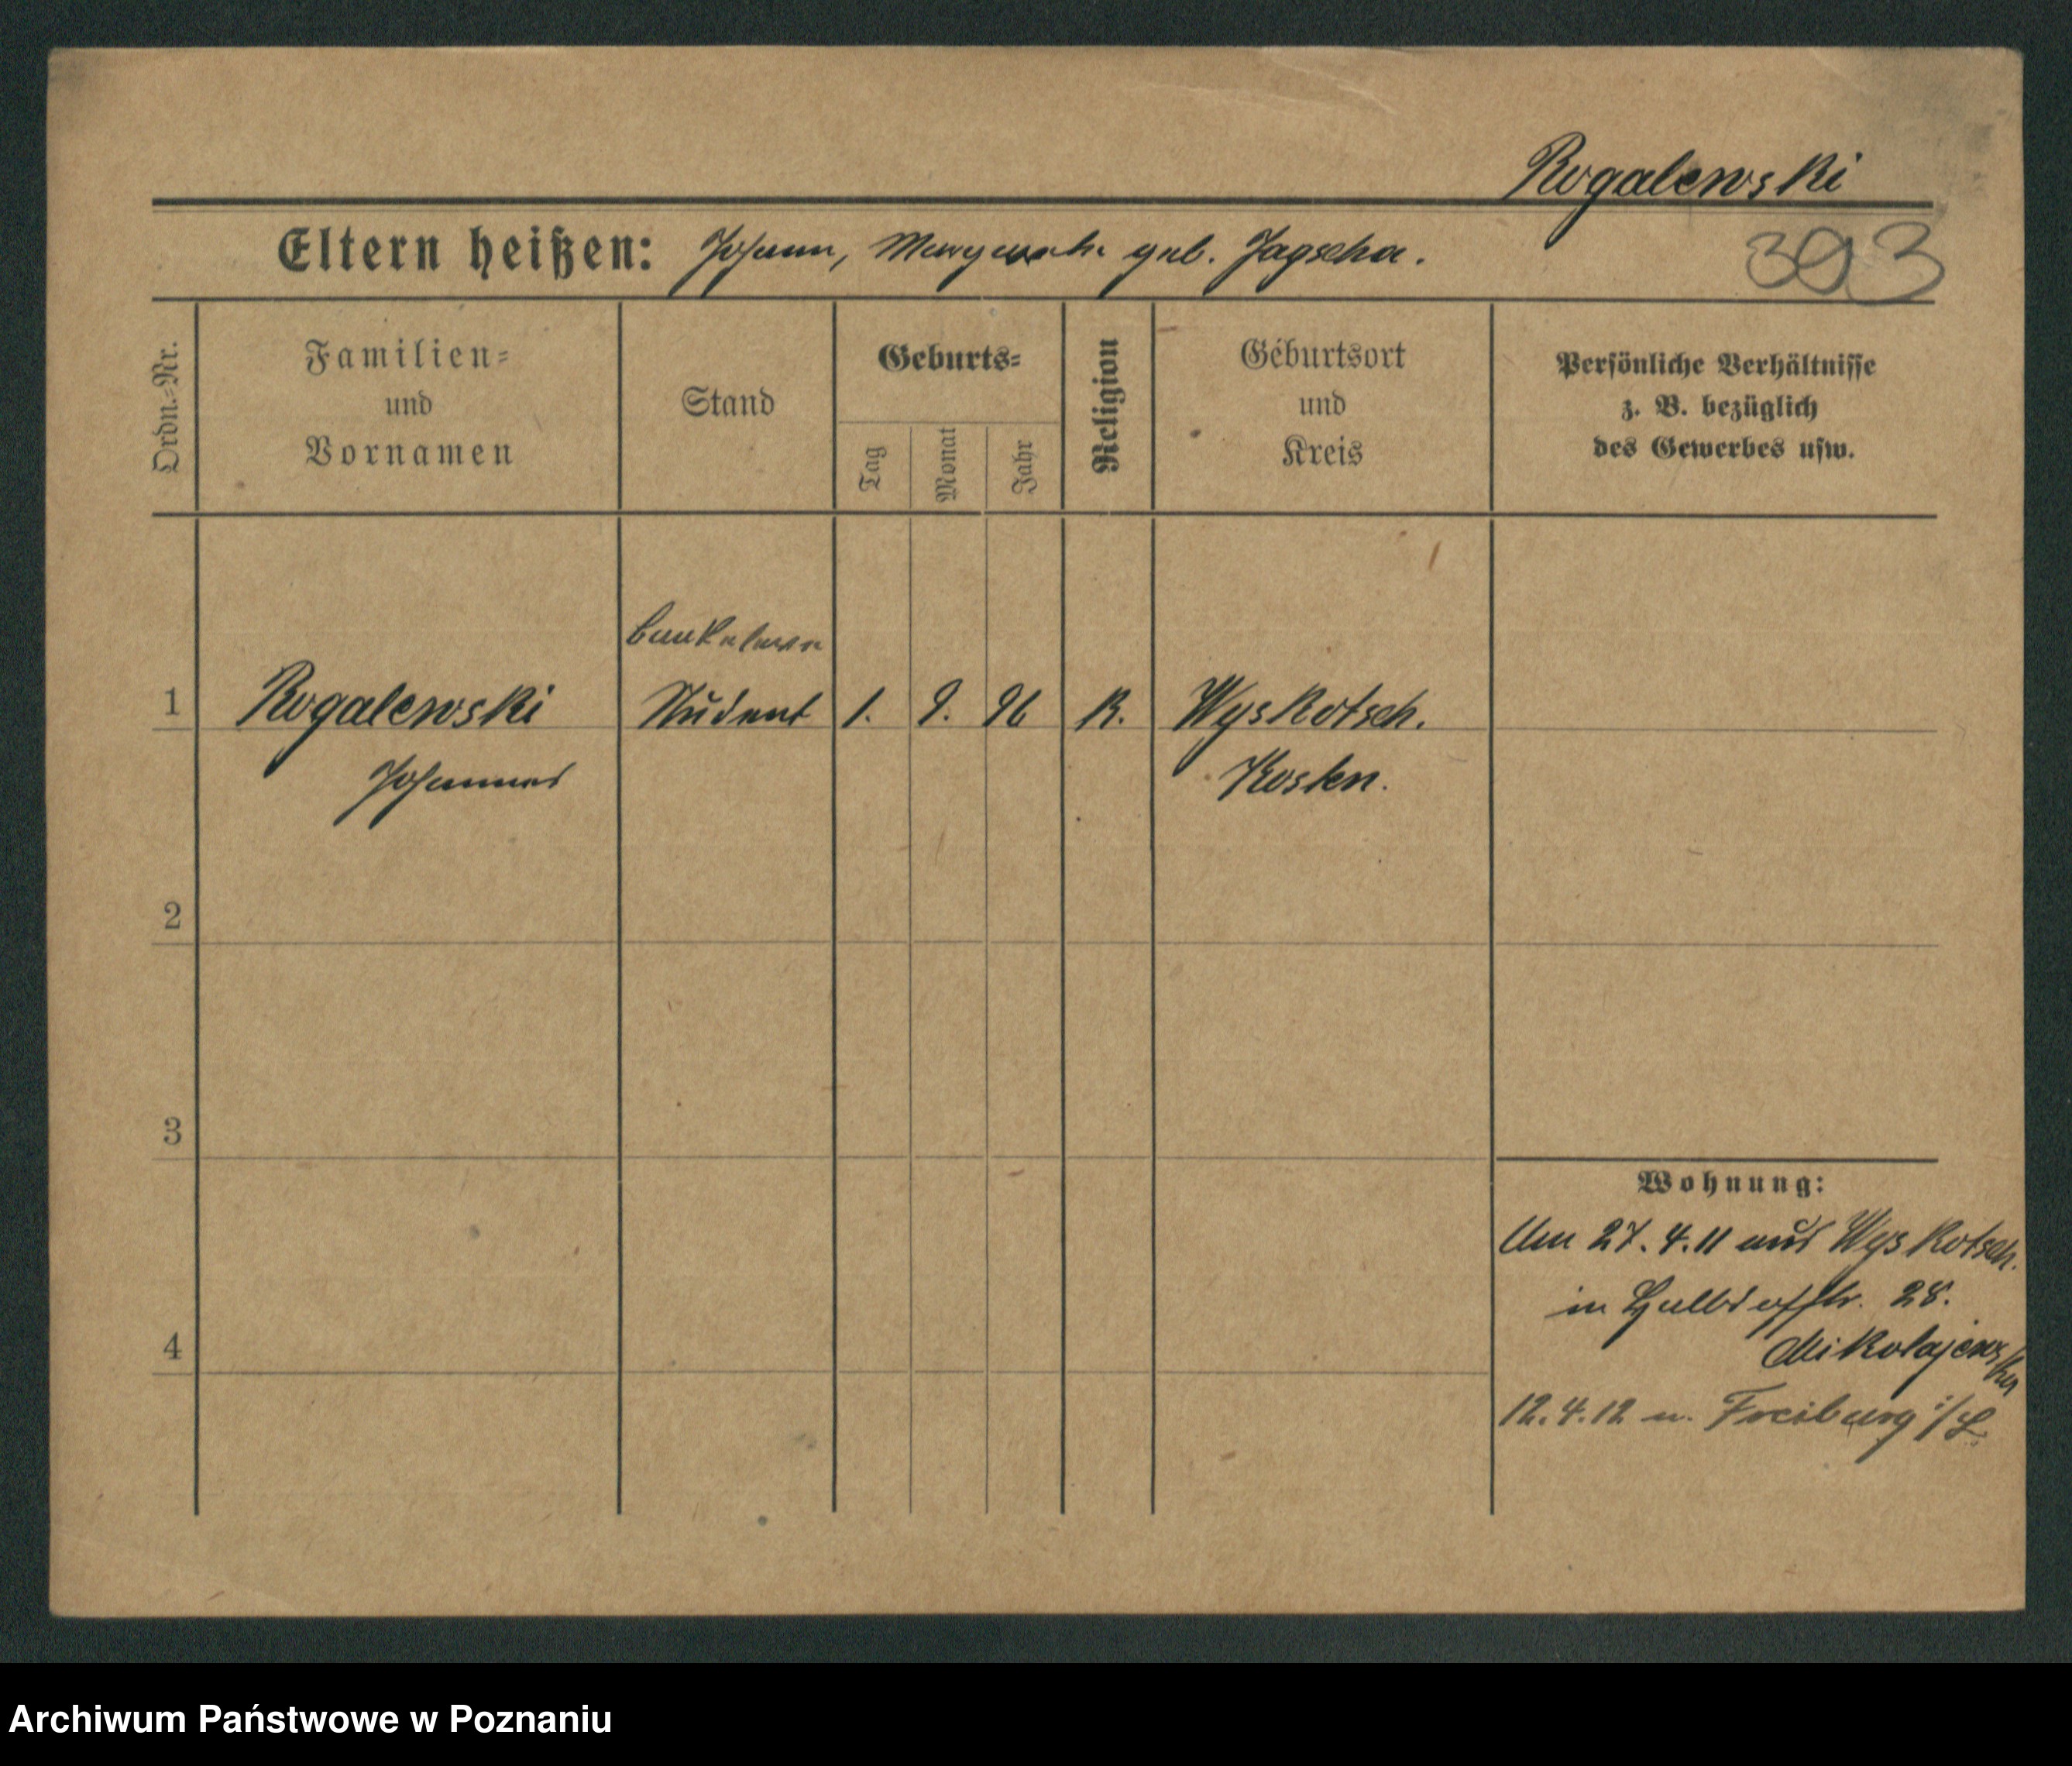 Rogalewski
Eltern heißen: Johann, Margareth. geb. Jagscha.
393
Ordn.-Nr.
Familien-
und
Vornamen
Stand
Geburts-
Tag
Monat
Jahr
Religion
Geburtsort
und
Kreis
Persönliche Verhältnisse
z. B. bezüglich
des Gewerbes usw.
1
Rogalewski
Johannes
Bankeleve
Student
1.
9.
96
K.
Wyskotsch.
Kosten.
2
3
4
Wohnung:
Am 27.4.11 aus Wyskotsch.
in Halbdorfstr. 28.
Mikolajewska
12.4.12 n. Freiburg i/S.
Archiwum Państwowe w Poznaniu